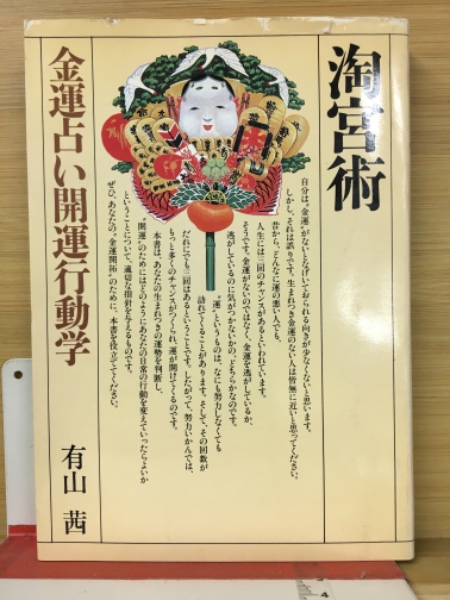 淘宮術
自分は“金運”がないとなげいておられる向きが少なくないと思います。
しかし、それは誤りです。生まれつき金運のない人は皆無に近いと思ってください。
昔から、どんなに運の悪い人でも、
人生には三回のチャンスがあるといわれています。
そうです。金運がないのではなく、金運を逃がしているか、
逃がしているのに気がつかないかの、どちらかなのです。
“運”というものは、なにも努力しなくても
訪れてくることがあります。そして、その回数が
だれにでも三回はあるということです。したがって、努力いかんでは、
もっと多くのチャンスがつくられ、運が開けてくるのです。
本書は、あなたの生まれつきの運勢を判断し、
“開運”のためにはどのようにあなたの日常の行動を変えていったらよいか
ということについて、適切な指針を与えるものです。
ぜひ、あなたの“金運開拓”のために、本書を役立ててください。
金運占い開運行動学
有山 茜